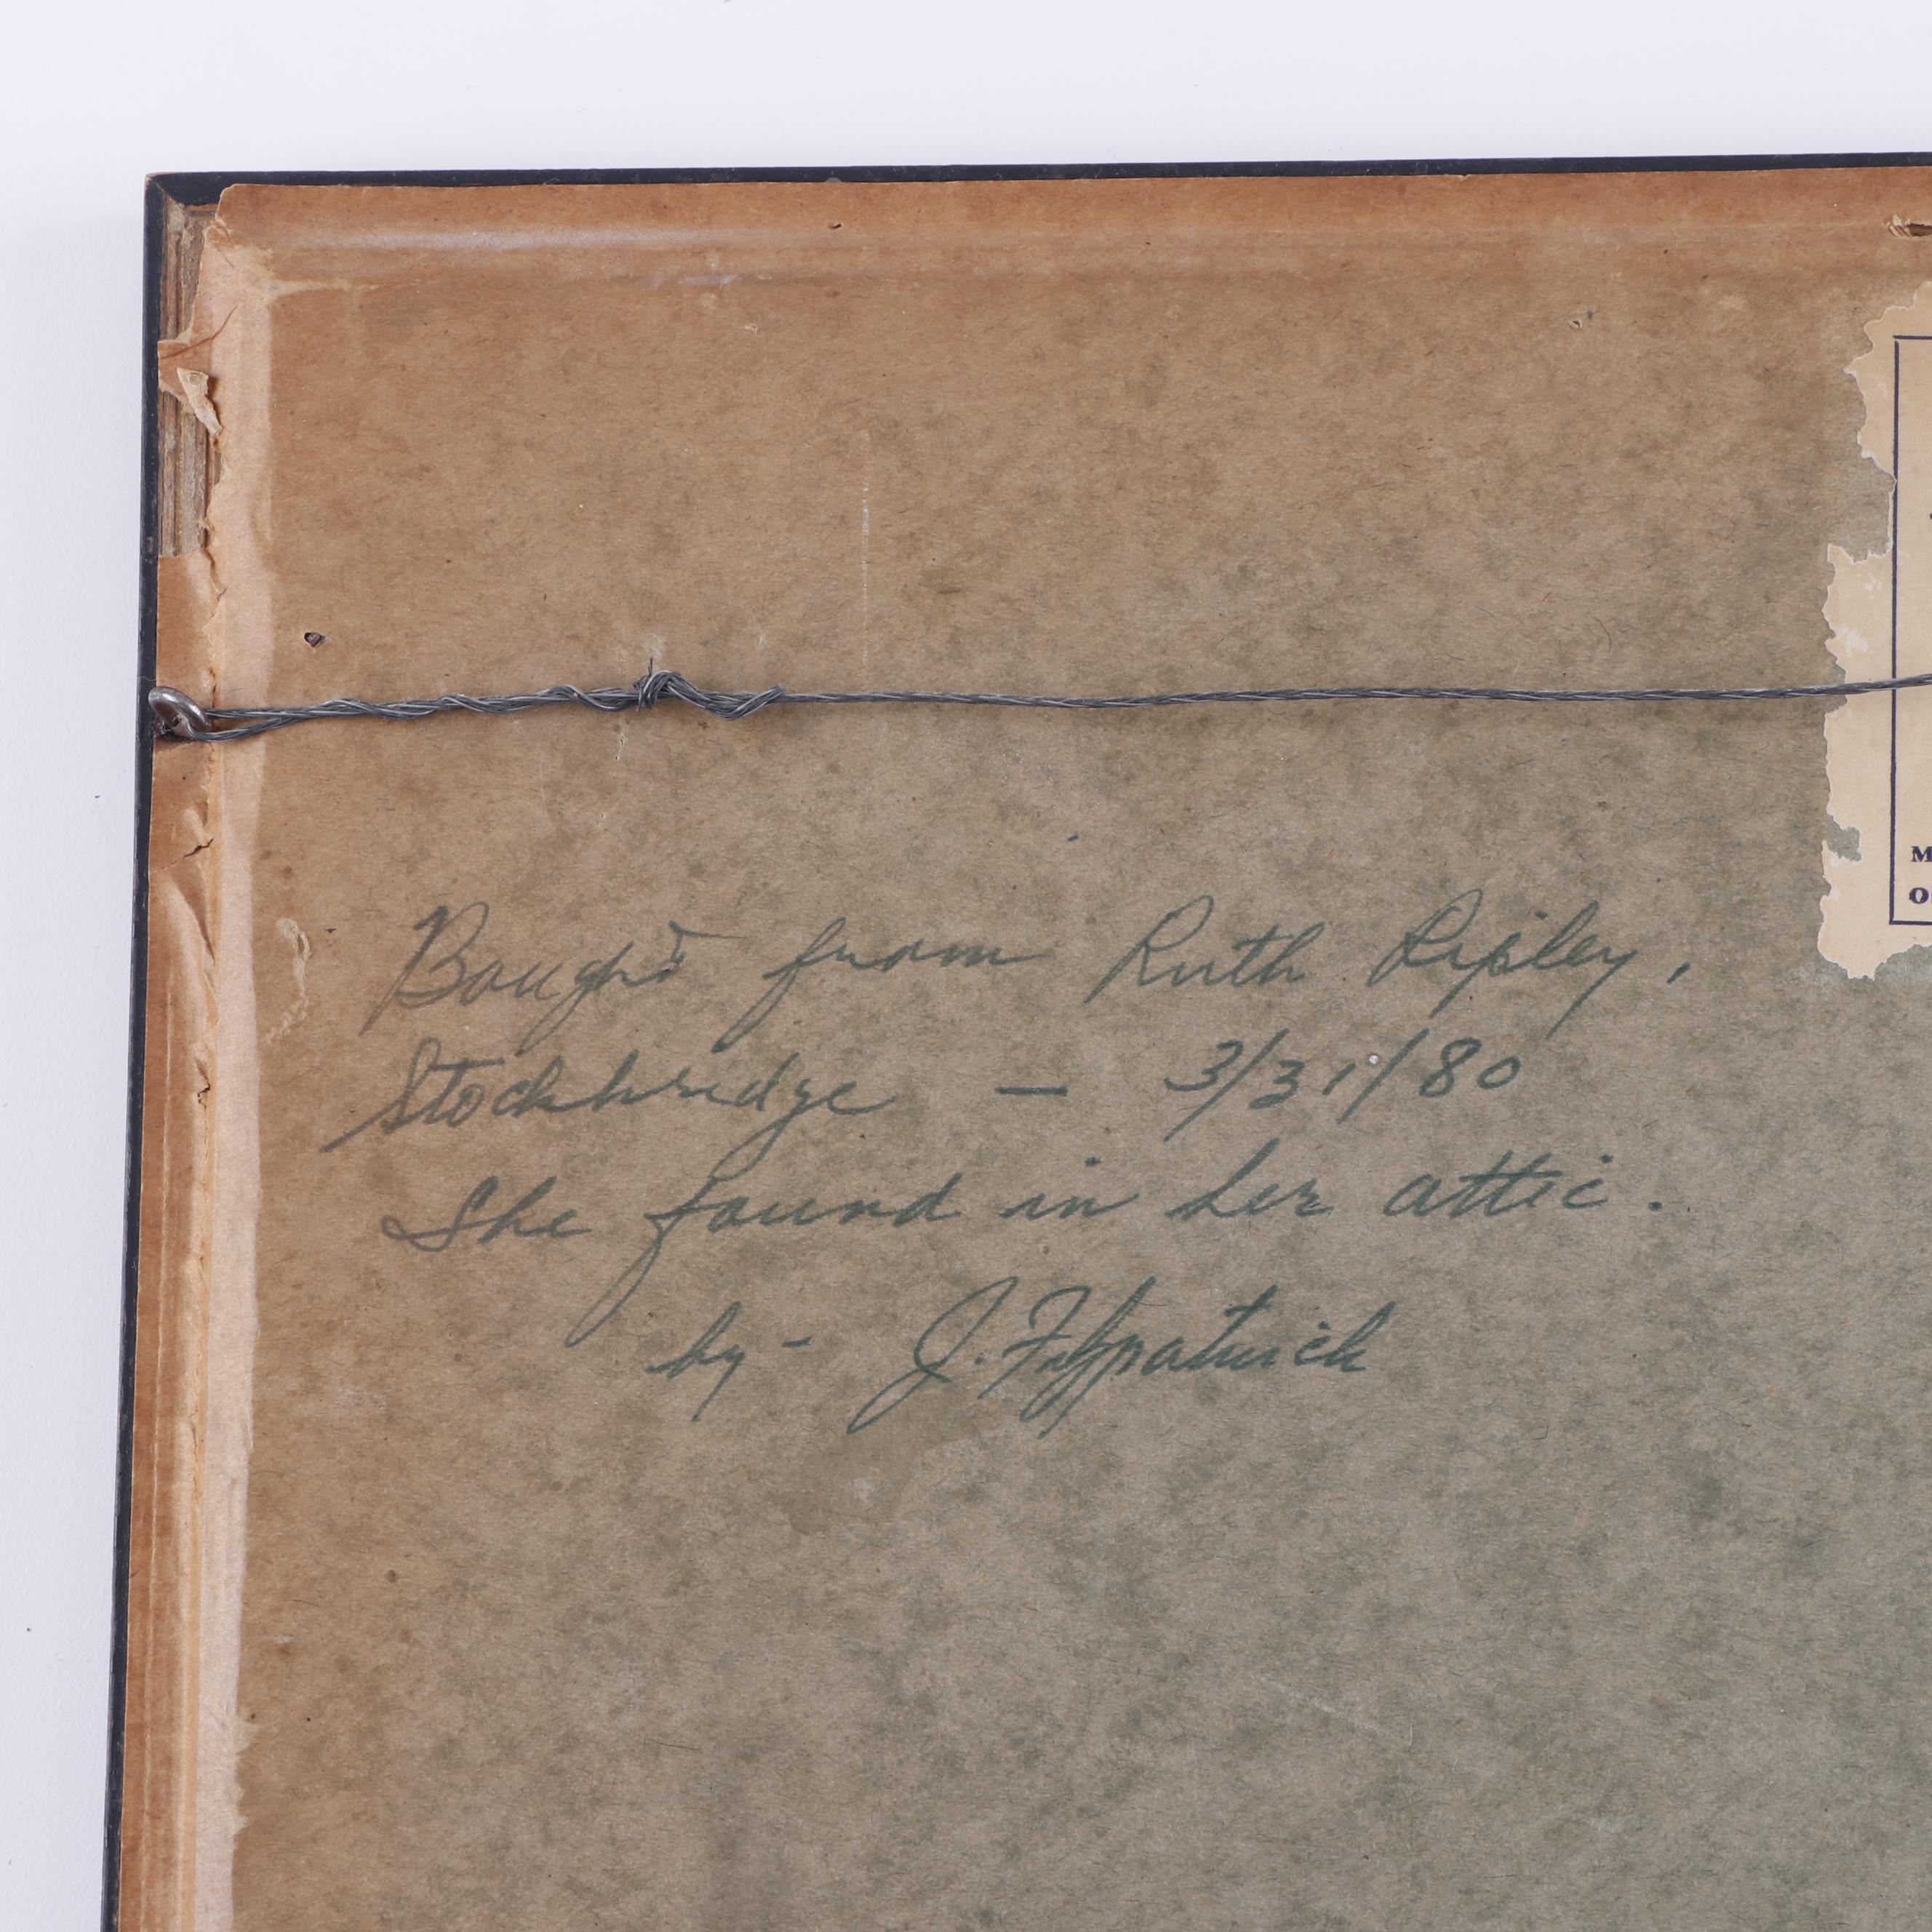 Bought from Ruth Ripley,
Stockbridge — 3/31/80
She found in her attic.
by - J. Fitzpatrick